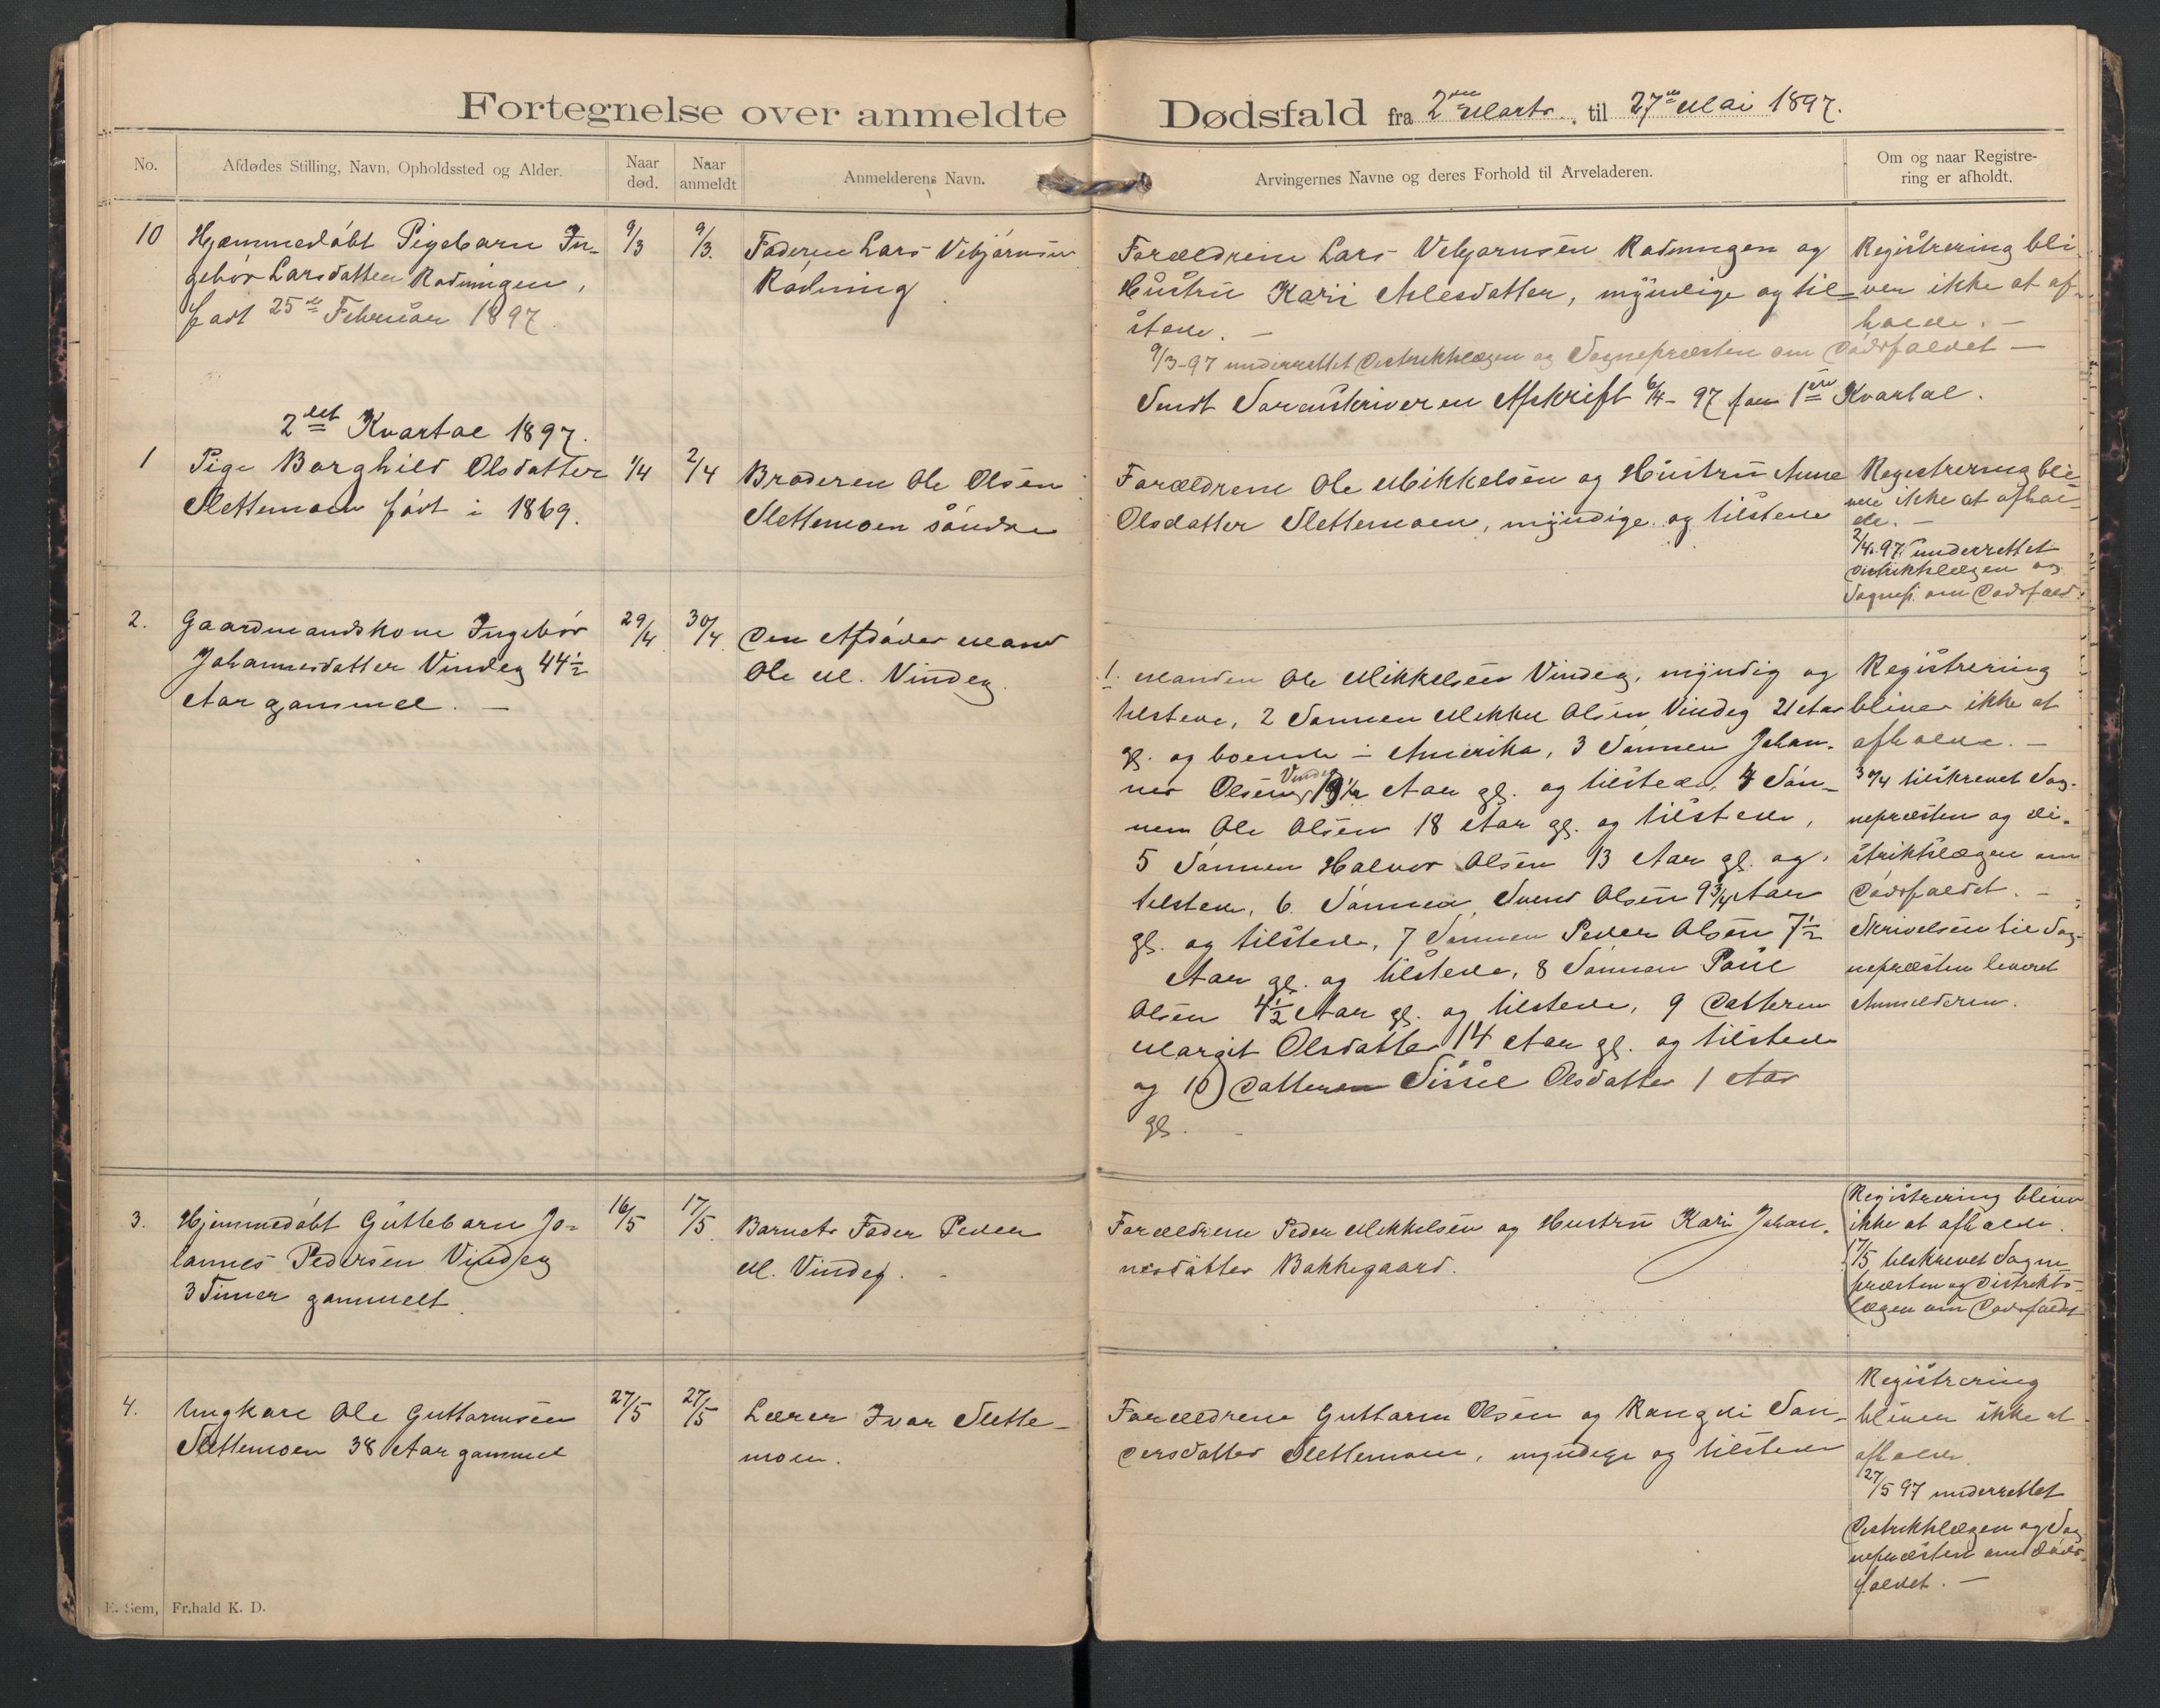 Fortegnelse over anmeldte Dødsfald fra 2den Marts. til 27de Mai 1897.
No.
Afdødes Stilling, Navn, Opholdssted og Alder.
Naar død.
Naar anmeldt
Anmelderens Navn.
Arvingernes Navne og deres Forhold til Arveladeren.
Om og naar Registre-
ring er afholdt.
10
Hjæmmedøbt Pigebarn In-
gebør Larsdatter Rødningen,
født 25de Februar 1897.
9/3
9/3.
Faderen Lars Vebjørnsen
Rødning.
Forældrene Lars Vebjørnsen Rødningen og
Hustru Kari Aslesdatter, myndige og til-
stede. —
9/3-97 underrettet Distriktslægen og Sognepræsten om Dødsfaldet —
Registrering bli-
ver ikke at af-
holde. —
Sendt Sorenskriveren Afskrift 6/4-97 for 1ste Kvartal.
2det Kvartal 1897.
1
Pige Borghild Olsdatter
Slettemoen født i 1869.
1/4
2/4
Broderen Ole Olsen
Slettemoen søndre
Forældrene Ole Mikkelsen og Hustru Anne
Olsdatter Slettemoen, myndige og tilstede
Registrering bli-
ver ikke at afhol-
de. —
2/4.97 underrettet
Distriktslægen og
Sognep. om Dødsfald.
2.
Gaardmandskone Ingebør
Johannesdatter Vindeg 44½
Aar gammel. —
29/4
30/4.
Den Afdødes Mand
Ole M. Vindeg
1. Manden Ole Mikkelsen Vindeg, myndig og
tilstede, 2 Sønnen Mekkel Olsen Vindeg 21 Aar
gl. og boende i Amerika, 3 Sønnen Johan-
nes Olsen Vindeg 19½ Aar gl. og tilstede, 4 Søn-
nen Ole Olsen 18 Aar gl. og tilstede,
5 Sønnen Halvor Olsen 13 Aar gl. og
tilstede, 6. Sønnen Svend Olsen 9¾ Aar
gl. og tilstede, 7 Sønnen Peder Olsen 7½
Aar gl. og tilstede, 8 Sønnen Paul
Olsen 4½ Aar gl. og tilstede, 9 Datteren
Margit Olsdatter 14 Aar gl. og tilstede
og 10) Datteren Sissel Olsdatter 1 Aar
gl. —
Registrering
bliver ikke at
afholde. —
30/4 tilskrevet Sog-
nepræsten og Di-
striktslægen om
Dødsfaldet. —
Skrivelsen til Sog-
nepræsten leveret
Anmelderen.
3.
Hjemmedøbt Guttebarn Jo-
hannes Pedersen Vindeg
3 Timer gammelt.
16/5
17/5.
Barnets Fader Peder
M. Vindeg. -
Forældrene Peder Mikkelsen og Hustru Kari Johan-
nesdatter Bakkegaard.
Registrering bliver
ikke at afholde.
17/5 tilskrevet Sogne-
præsten og Distrikts-
lægen om Dødsfaldet
4.
Ungkarl Ole Guttormsen
Slettemoen 38 Aar gammel
27/5
27/5
Lærer Ivar Slette-
moen.
Forældrene Guttorm Olsen og Rangdi San-
dersdatter Slettemoen, myndige og tilstede
Registrering
bliver ikke at
afholde.
27/5 97 underrettet
Distriktslægen og Sog-
nepræsten om Døds-
faldet. —
E. Sem, Fr.hald K. D.